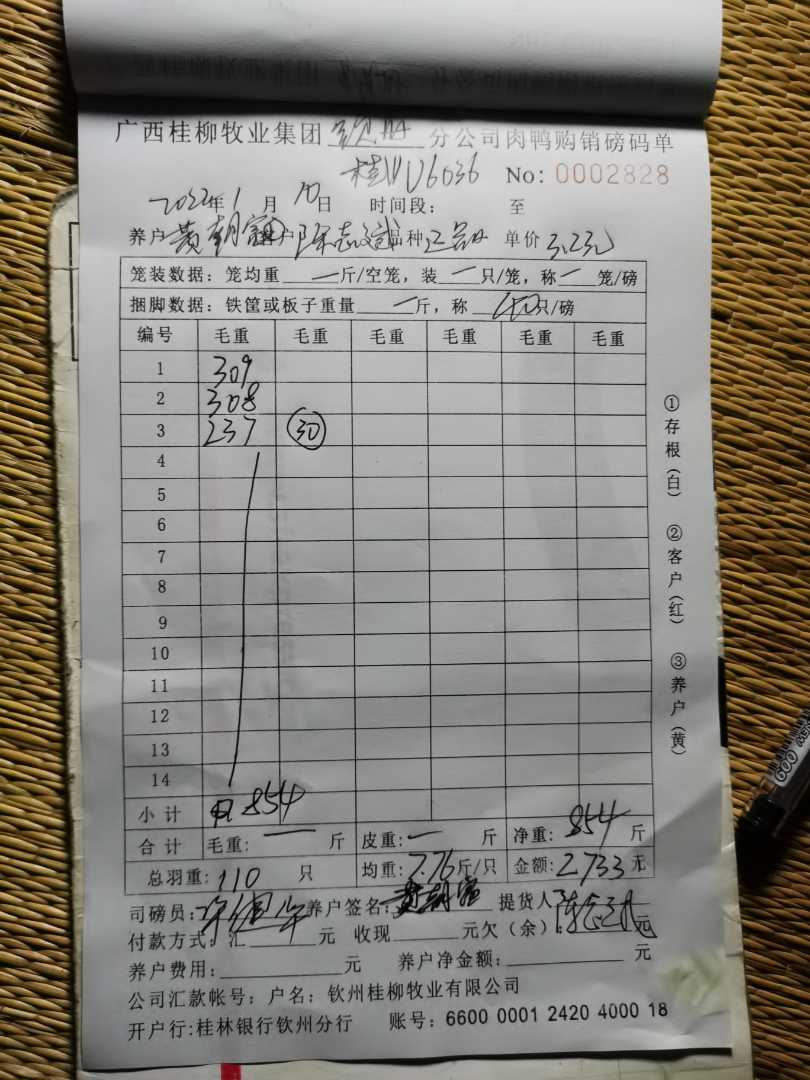 广西桂柳牧业集团 分公司肉鸭购销磅码单
No: 0002828
2022年1月10日 时间段: 至
养户黄朝富 客户陈志 品种正品 单价3.2元
笼装数据: 笼均重 一 斤/空笼, 装 一 只/笼, 称 一 笼/磅
捆脚数据: 铁筐或板子重量 一 斤, 称 40只/磅
编号 毛重 毛重 毛重 毛重 毛重 毛重
1 309
2 308
3 237 30
4
5
6
7
8
9
10
11
12
13
14
小计 854
合计 毛重: 一 斤 皮重: 一 斤 净重: 854 斤
总羽重: 110 只 均重: 7.76斤/只 金额: 2733元
司磅员: 养户签名: 黄朝富 提货人: 陈志
付款方式: 汇 元 收现 元欠(余): 元
养户费用: 元 养户净金额: 元
公司汇款帐号: 户名: 钦州桂柳牧业有限公司
开户行:桂林银行钦州分行 账号: 6600 0001 2420 4000 18
①存根(白) ②客户(红) ③养户(黄)
600